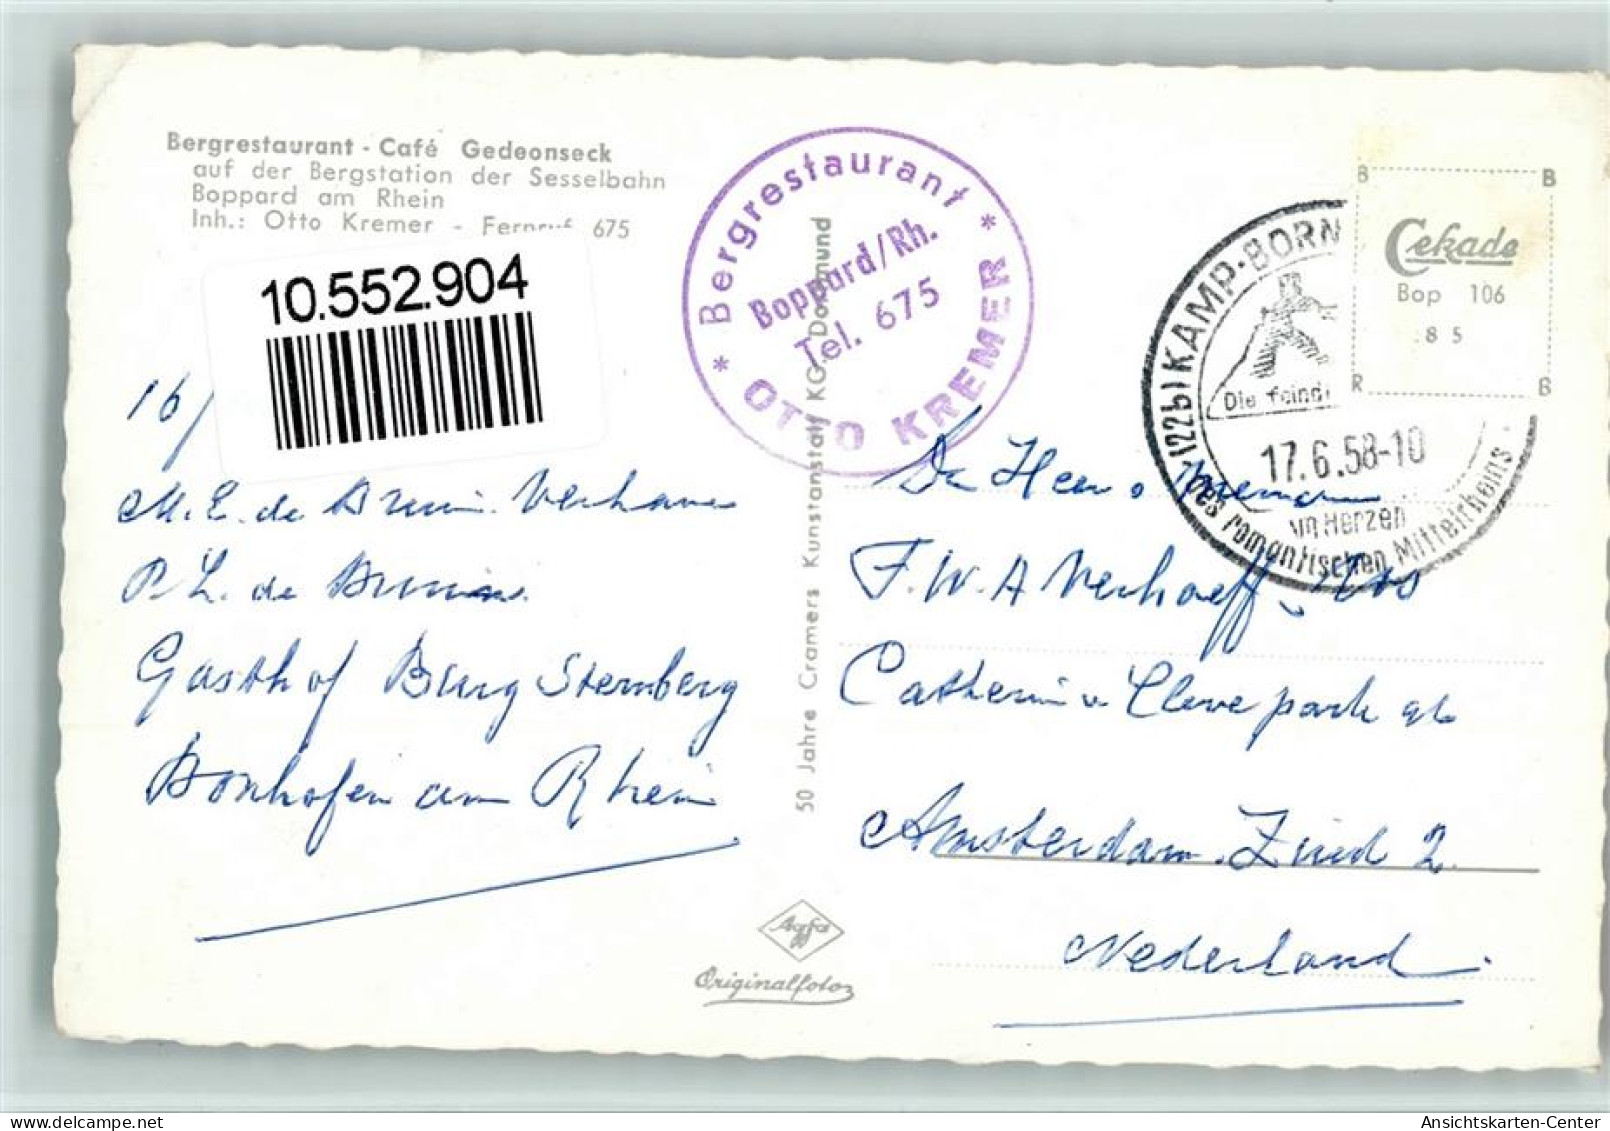 Bergrestaurant - Café Gedeonseck
auf der Bergstation der Sesselbahn
Boppard am Rhein
Inh.: Otto Kremer - Fernruf 675
10.552.904
16/
M. E. de Bruin. Verhave
P. L. de Bruin
Gasthof Burg Sternberg
Bornhofen am Rhein
* Bergrestaurant *
Boppard/Rh.
Tel. 675
OTTO KREMER
50 Jahre Cramers Kunstanstalt KG. Dortmund
Agfa
Originalfoto
(22b) KAMP-BORN
Die feindl
17.6.58-10
im Herzen
des romantischen Mittelrheins
B B
Cekade
Bop 106
8 5
R B
De Heer
F. W. A Verhoeff
Catharina v. Clevepark 96
Amsterdam. Zuid 2.
Nederland.
Ansichtskarten-Center